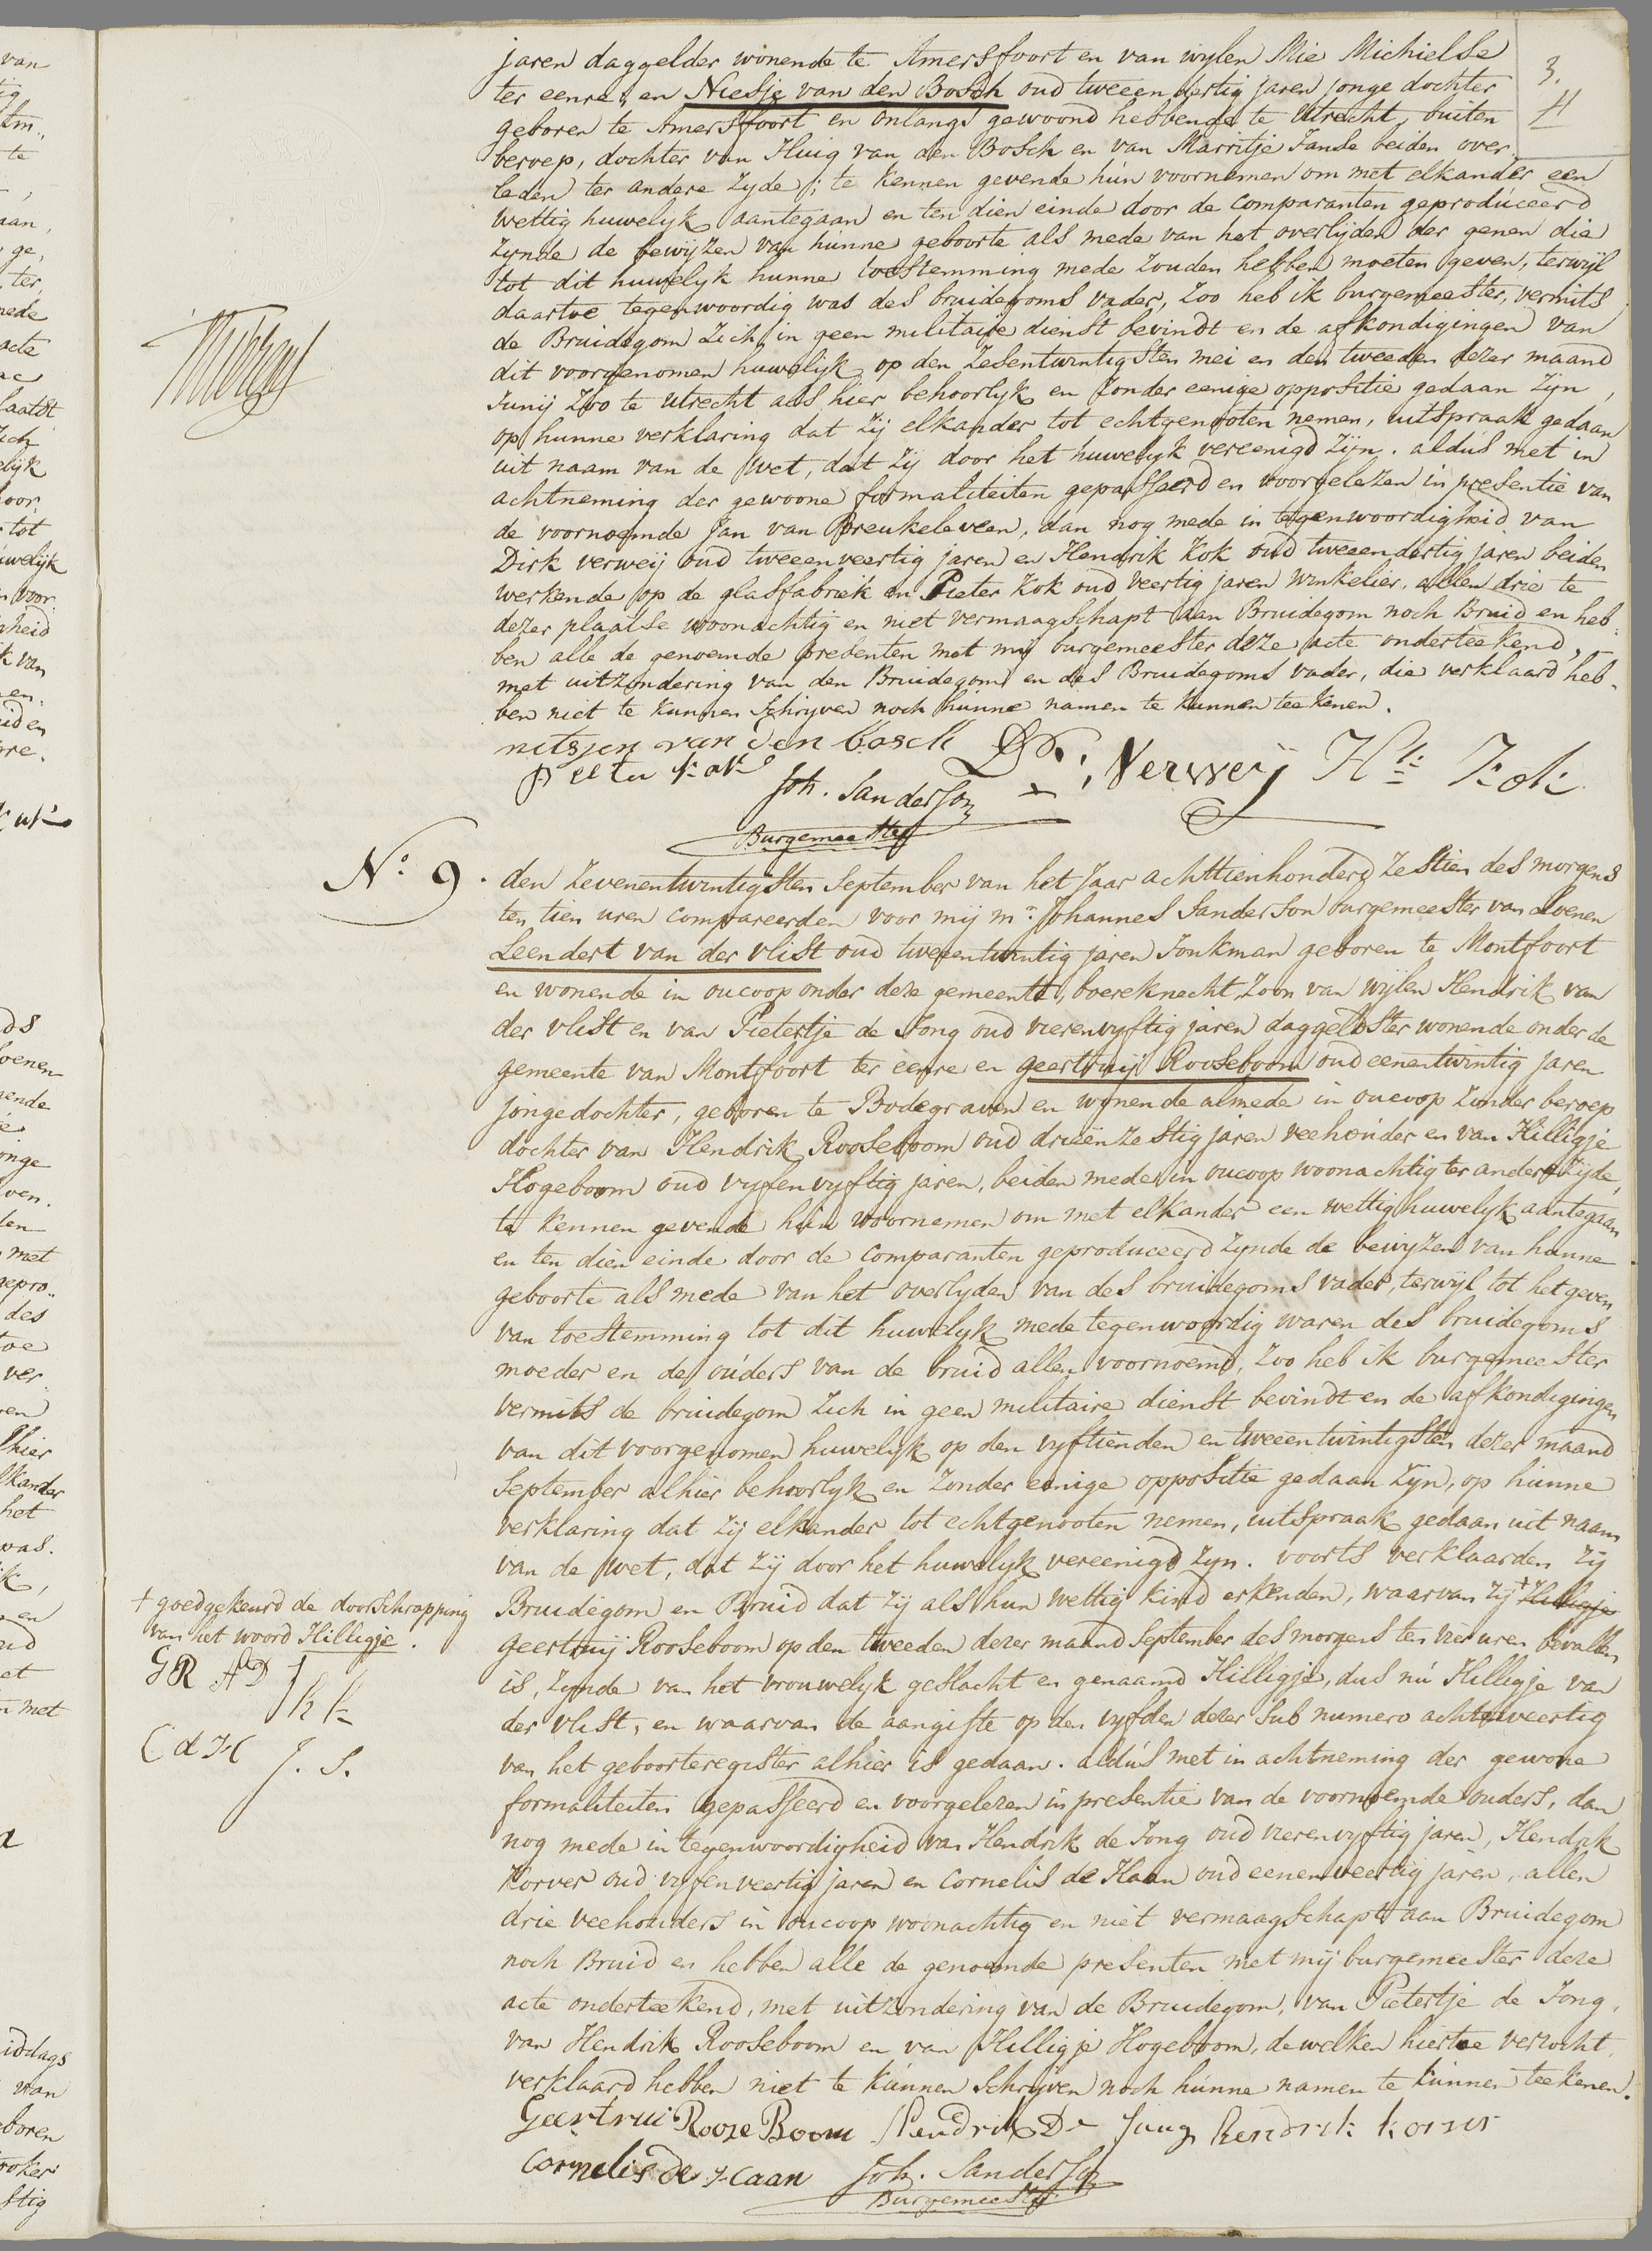 3.
4
jaren daggelder wonende te Amersfoort en van wylen Mie Michielse
ter eenre, en Niesje van den Bosch oud tweeendertig jaren jonge dochter
geboren te Amersfoort en onlangs gewoond hebbende te Utrecht, buiten
beroep, dochter van Huig van den Bosch en van Marritje Janse beiden over
leden ter andere zyde; te kennen gevende hun voornemen om met elkander een
wettig huwelyk aantegaan en ten dien einde door de comparanten geproduceerd
zynde de bewyzen van hunne geboorte als mede van het overlyden der genen die
tot dit huwelyk hunne toestemming mede zouden hebben moeten geven, terwyl
daartoe tegenwoordig was des bruidegoms vader, Zoo heb ik burgemeester, vermits
de Bruidegom zich in geen militaire dienst bevindt en de afkondigingen van
dit voorgenomen huwelyk op den zesentwintigsten mei en den tweeden dezer maand
Junij zoo te Utrecht als hier behoorlyk en zonder eenige oppositie gedaan zyn,
op hunne verklaring dat zij elkander tot echtgenooten nemen, uitspraak gedaan
uit naam van de wet, dat zij door het huwelyk vereenigd zijn. aldus met in
achtneming der gewoone formaliteiten gepasseerd en voorgelezen in presentie van
de voornoemde Jan van Breukeleveen, dan nog mede in tegenwoordigheid van
Dirk verweij oud tweeenveertig jaren en Hendrik Kok oud tweeendertig jaren beiden
werkende op de glasfabriek en Pieter Kok oud veertig jaren winkelier, allen drie te
dezer plaatse woonachtig en niet vermaagschapt aan Bruidegom noch Bruid en heb
ben alle de genoemde presenten met mij burgemeester deze acte onderteekend,
met uitzondering van den Bruidegom en des Bruidegoms vader, die verklaard heb
ben niet te kunnen schryven noch hunne namen te kunnen teekenen.
netsjen van den bosch Dk: Verweij Hk: Kok
pieter kok Joh. Sanderson
Burgemeester
No. 9. den zevenentwintigsten September van het Jaar achttienhonderd zestien des morgens
ten tien uren compareerden voor mij mr. Johannes Sanderson burgemeester van Loenen
Leendert van der vlist oud tweeentwintig jaren Jonkman geboren te Montfoort
en wonende in oucoop onder deze gemeente, boereknecht Zoon van wijlen Hendrik van
der vlist en van Pietertje de Jong oud vierenvyftig jaren daggeldster wonende onder de
gemeente van Montfoort ter eenre en geertruij Rooseboom oud eenentwintig jaren
jongedochter, geboren te Bodegraven en wonende almede in oucoop zonder beroep
dochter van Hendrik Rooseboom oud drieënzestig jaren veehouder en van Hilligje
Hogeboom oud vyfenvyftig jaren, beiden mede in oucoop woonachtig ter andere zijde,
te kennen gevende hun voornemen om met elkander een wettig huwelyk aantegaan
en ten dien einde door de comparanten geproduceerd zynde de bewyzen van hunne
geboorte als mede van het overlyden van des bruidegoms vader, terwijl tot het geven
van toestemming tot dit huwelyk mede tegenwoordig waren des bruidegoms
moeder en de ouders van de bruid allen voornoemd, Zoo heb ik burgemeester
vermits de bruidegom zich in geen militaire dienst bevindt en de afkondigingen
van dit voorgenomen huwelyk op den vyftienden en tweeentwintigsten dezer maand
September alhier behoorlyk en zonder eenige oppositie gedaan zyn, op hunne
verklaring dat zij elkander tot echtgenooten nemen, uitspraak gedaan uit naam
van de wet, dat zij door het huwelyk vereenigd zyn. voorts verklaarden zij
Bruidegom en Bruid dat zij als hun wettig kind erkenden, waarvan zij + Hilligje
geertruij Rooseboom op den tweeden dezer maand September des morgens ten vier uren bevallen
is, zynde van het vrouwelyk geslacht en genaamd Hilligje, dus nu Hilligje van
der vlist, en waarvan de aangifte op den vyfden dezer sub numero achtenveertig
van het geboorteregister alhier is gedaan. aldus met in achtneming der gewone
formaliteiten gepasseerd en voorgelezen in presentie van de voornoemde ouders, dan
nog mede in tegenwoordigheid van Hendrik de Jong oud vierenvyftig jaren, Hendrik
Korver oud vyfenveertig jaren en Cornelis de Haan oud eenenveertig jaren, allen
drie veehouders in oucoop woonachtig en niet vermaagschapt aan Bruidegom
noch Bruid en hebben alle de genoemde presenten met mij burgemeester deze
acte onderteekend, met uitzondering van de Bruidegom, van Pietertje de Jong,
van Hendrik Rooseboom en van Hilligje Hogeboom, dewelken hiertoe verzocht,
verklaard hebben niet te kunnen schryven noch hunne namen te kunnen teekenen.
Geertrui Rooze Boom Hendrik De Jong hendrik korver
Cornelis de Haan Joh. Sanderson
Burgemeester
+ goedgekeurd de doorschrapping
van het woord Hilligje.
GR HD J
h k
C d H J. S.